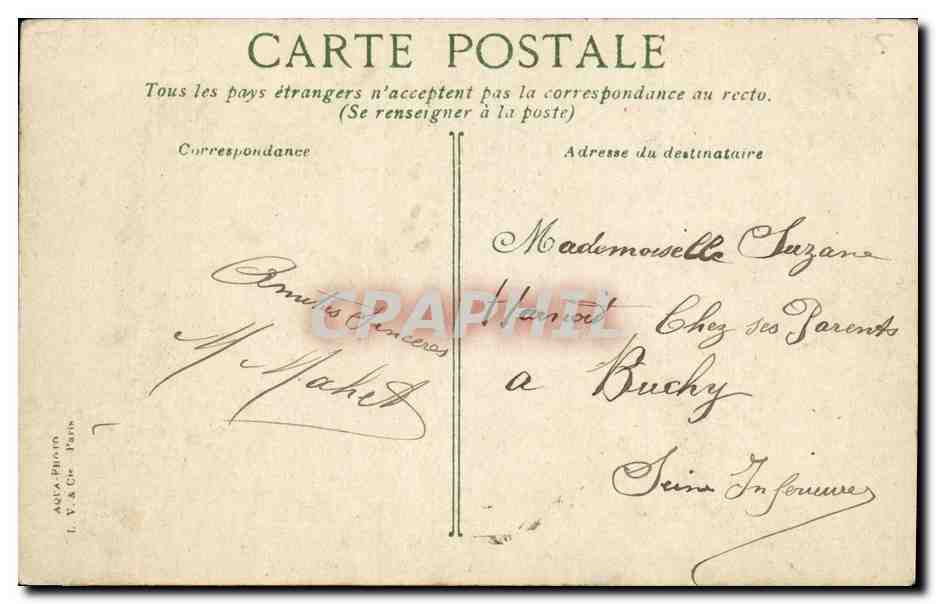 CARTE POSTALE
Tous les pays étrangers n'acceptent pas la correspondance au recto.
(Se renseigner à la poste)
Correspondance
Adresse du destinataire
Amitiés Sincères
M Mahet
Mademoiselle Suzane
Chez ses Parents
a Buchy
Seine Inferieure
CPAPHIL
AQUA-PHOTO
L. V. & Cie Paris